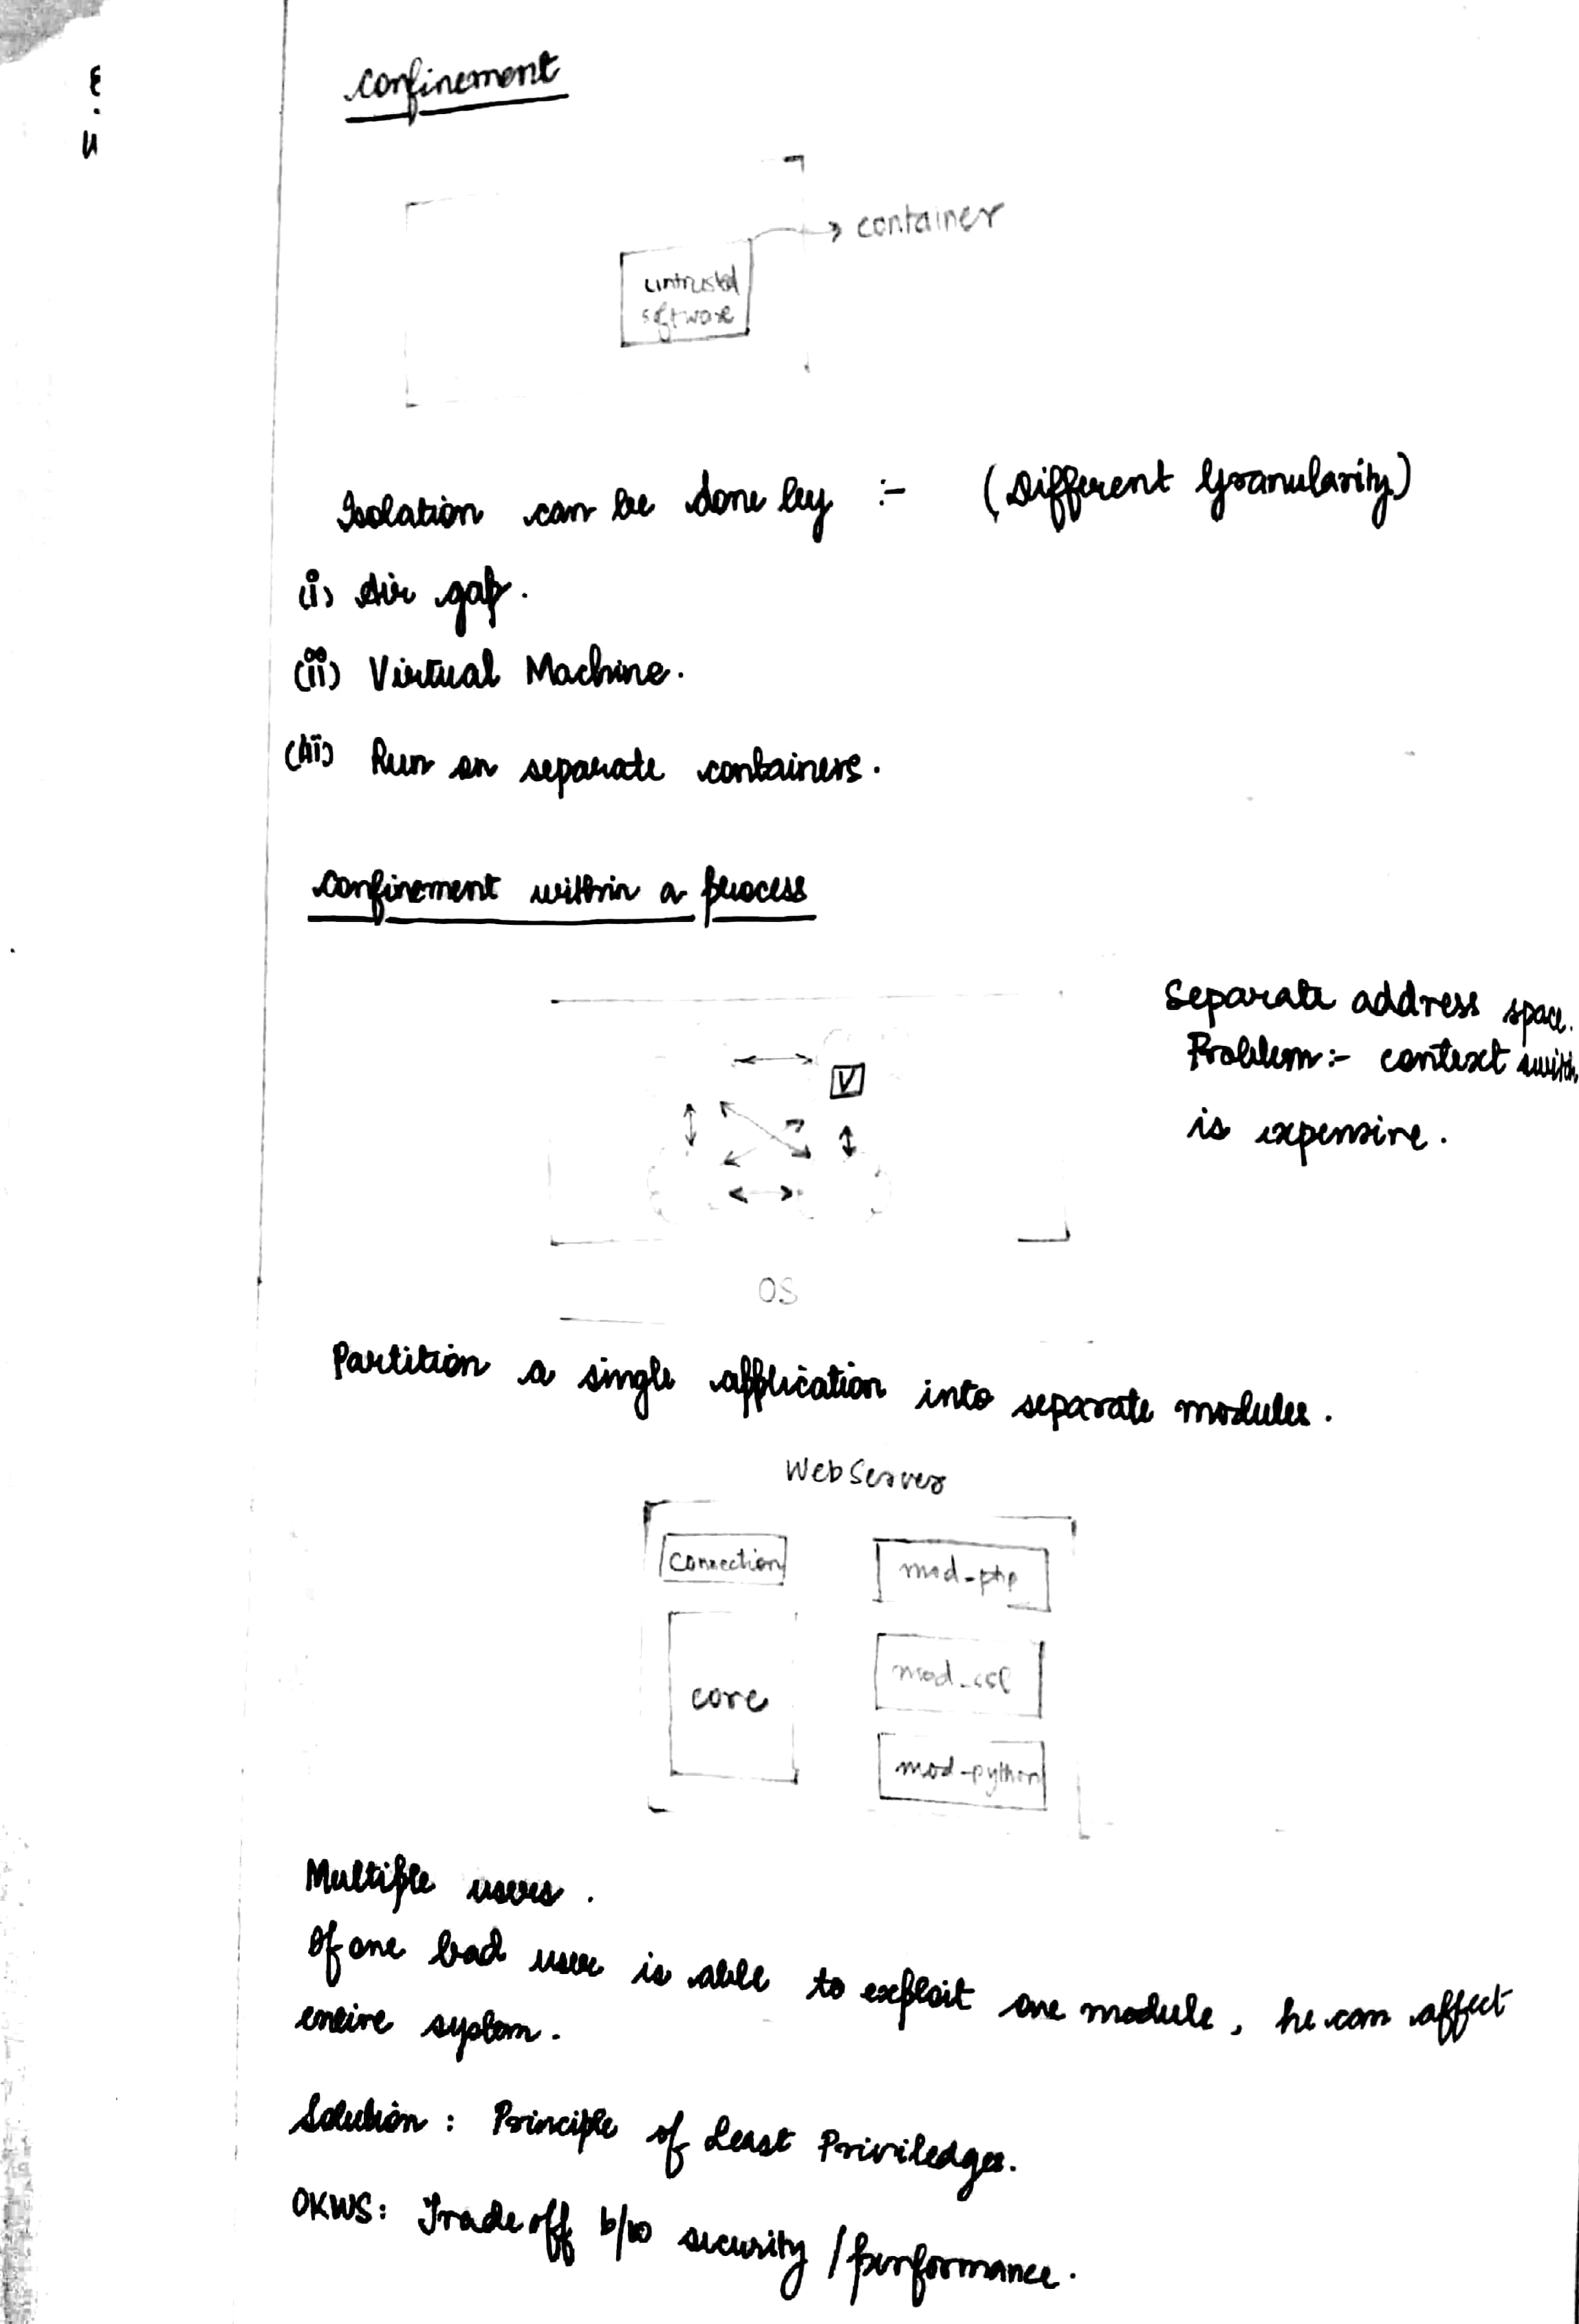 Confinement
container
untrusted
software
Isolation can be done by :- (Different Granularity)
(i) Air gap.
(ii) Virtual Machine.
(iii) Run on separate containers.
Confinement within a process
Separate address space.
Problem:- context switch
is expensive.
V
OS
Partition a single application into separate modules.
WebServer
Connection
mod_php
core
mod_ssl
mod_python
Multiple users.
If one bad user is able to exploit one module, he can affect
entire system.
Solution : Principle of Least Priviledges.
OKWS: Trade off b/w security / performance.